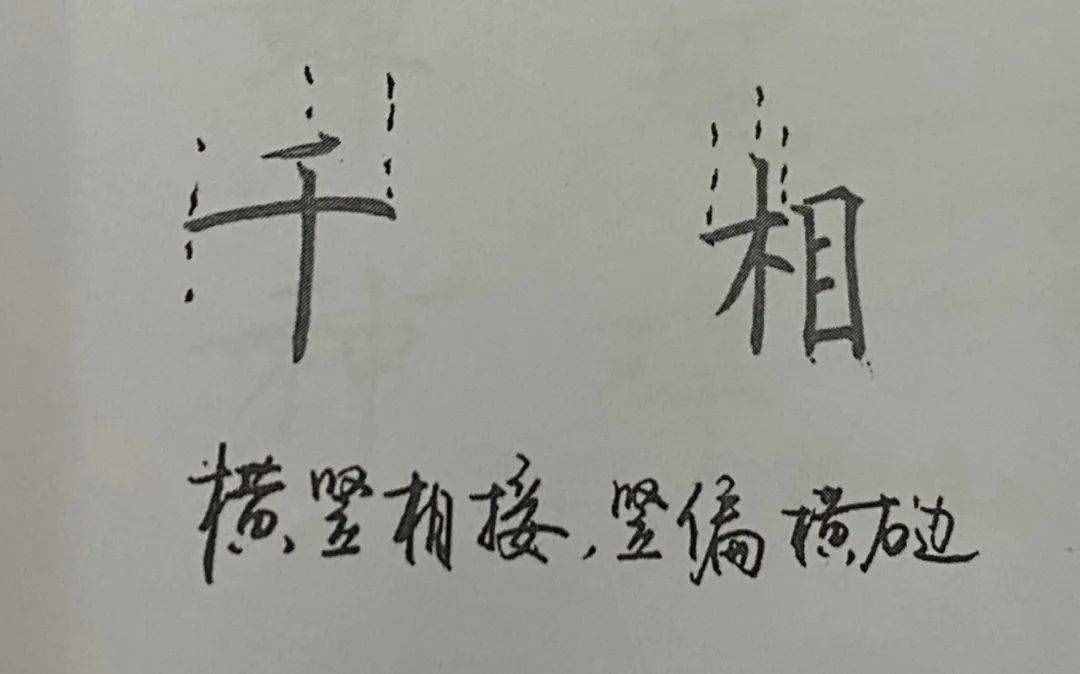 干 相
横竖相接,竖偏横右边